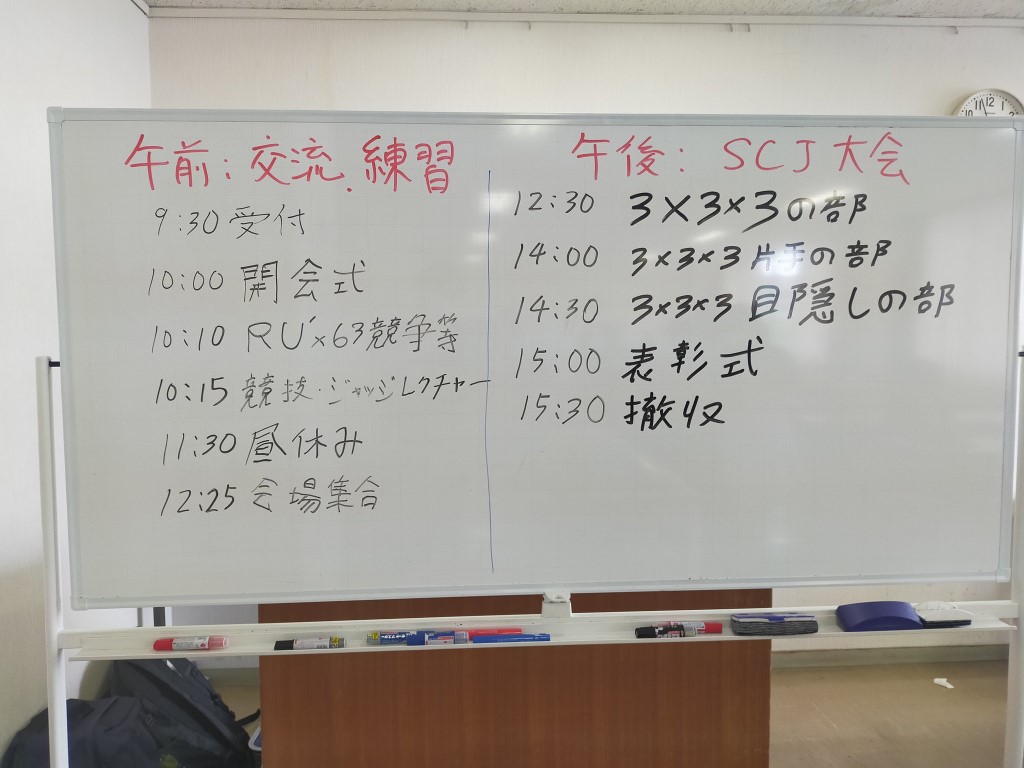 午前：交流.練習
9:30 受付
10:00 開会式
10:10 RU'×63競争等
10:15 競技・ジャッジレクチャー
11:30 昼休み
12:25 会場集合
午後：SCJ大会
12:30 3×3×3の部
14:00 3×3×3片手の部
14:30 3×3×3目隠しの部
15:00 表彰式
15:30 撤収